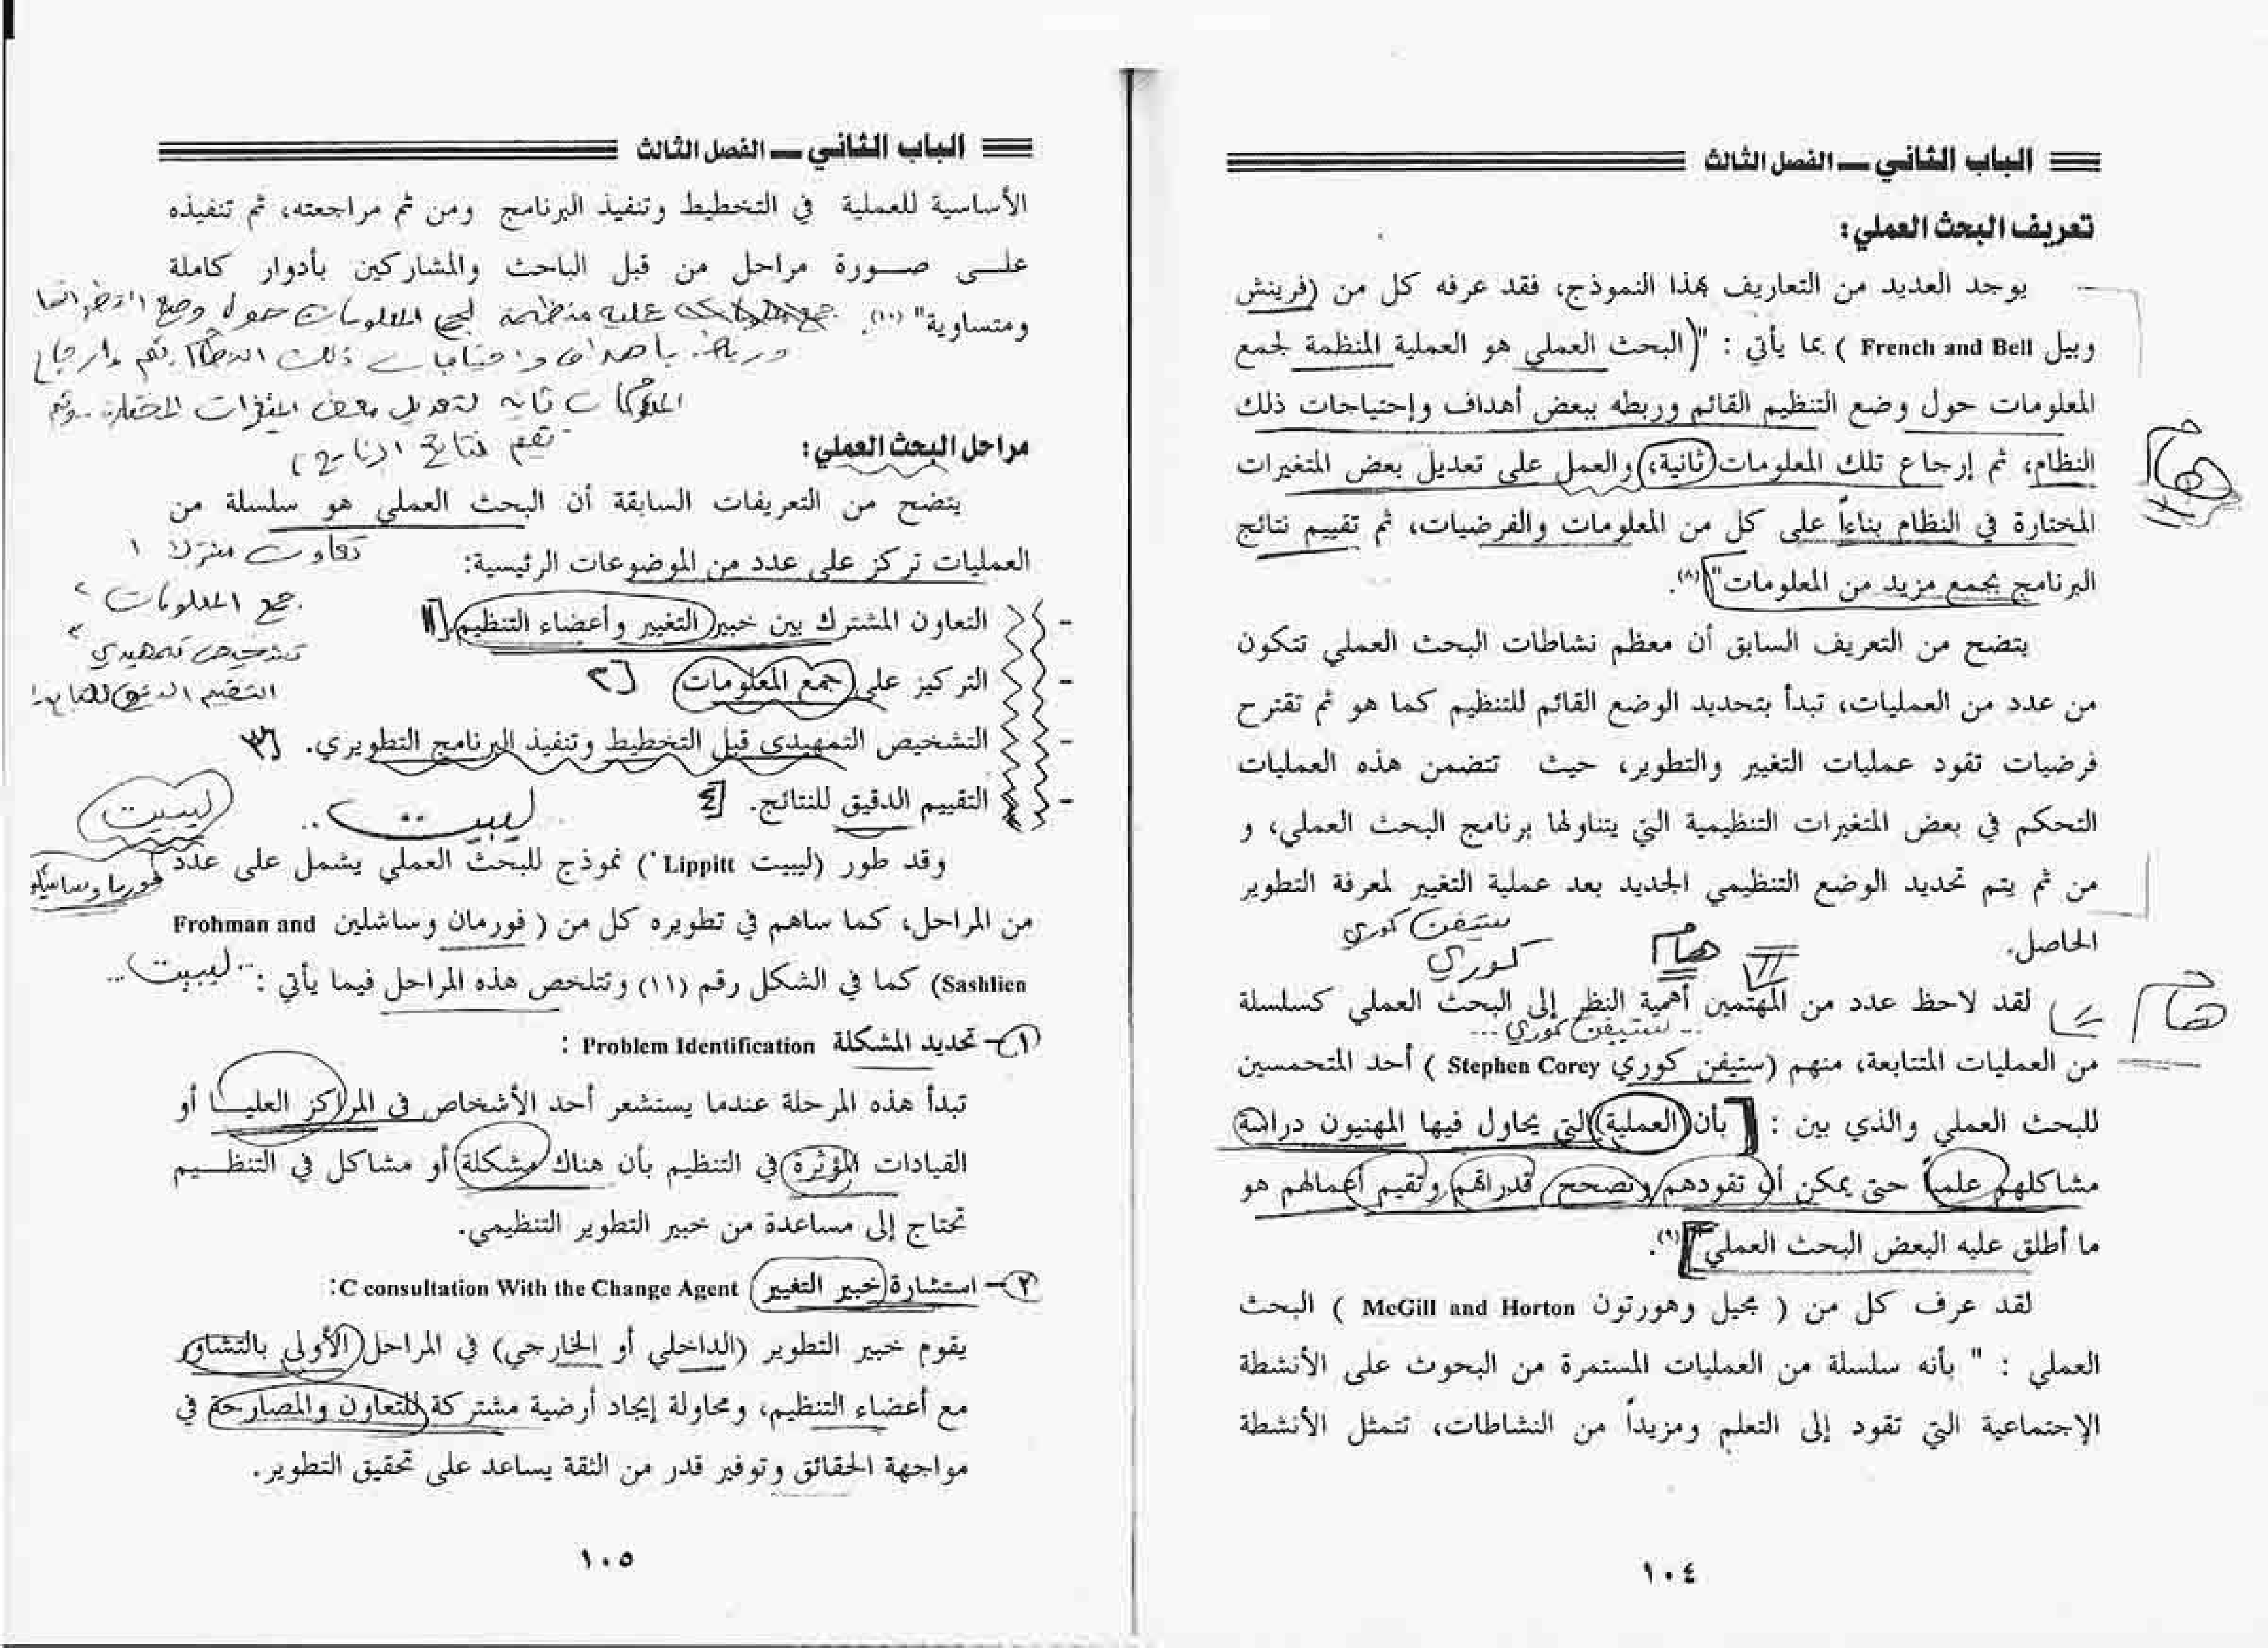 الباب الثاني ـ الفصل الثالث
تعريف البحث العملي:
يوجد العديد من التعاريف بهذا النموذج، فقد عرفه كل من (فرينش
وبيل French and Bell ) بما يأتي : "(البحث العملي هو العملية المنظمة لجمع
المعلومات حول وضع التنظيم القائم وربطه ببعض أهداف وإحتياجات ذلك
النظام، ثم إرجاع تلك المعلومات ثانية، والعمل على تعديل بعض المتغيرات
المختارة في النظام بناءاً على كل من المعلومات والفرضيات، ثم تقييم نتائج
البرنامج بجمع مزيد من المعلومات"(٨).
هام
يتضح من التعريف السابق أن معظم نشاطات البحث العملي تتكون
من عدد من العمليات، تبدأ بتحديد الوضع القائم للتنظيم كما هو ثم تقترح
فرضيات تقود عمليات التغيير والتطوير، حيث تتضمن هذه العمليات
التحكم في بعض المتغيرات التنظيمية التي يتناولها برنامج البحث العملي، و
من ثم يتم تحديد الوضع التنظيمي الجديد بعد عملية التغيير لمعرفة التطوير
الحاصل.
ستيفن كوري
كوري
هام
لقد لاحظ عدد من المهتمين أهمية النظر إلى البحث العملي كسلسلة
هام
.. ستيفن كوري ...
من العمليات المتتابعة، منهم (ستيفن كوري Stephen Corey ) أحد المتحمسين
للبحث العملي والذي بين : [بأن (العملية) التي يحاول فيها المهنيون دراسة
مشاكلهم علمياً حتى يمكن أن تقودهم وتصحح قدراتهم وتقيم أعمالهم هو
ما أطلق عليه البعض البحث العملي"](٩).
لقد عرف كل من ( مجيل وهورتون McGill and Horton ) البحث
العملي : " بأنه سلسلة من العمليات المستمرة من البحوث على الأنشطة
الإجتماعية التي تقود إلى التعلم ومزيداً من النشاطات، تتمثل الأنشطة
١٠٤
الباب الثاني ـ الفصل الثالث
الأساسية للعملية في التخطيط وتنفيذ البرنامج ومن ثم مراجعته، ثم تنفيذه
على صورة مراحل من قبل الباحث والمشاركين بأدوار كاملة
ومتساوية"(١٠).
عليه منظمة لجمع المعلومات حول وضع
وربطه بأهداف واحتياجات ذلك
المعلومات ثانيه لتعديل بعض المتغيرات المختارة وثم
تقيم نتائج
مراحل البحث العملي:
يتضح من التعريفات السابقة أن البحث العملي هو سلسلة من
العمليات تركز على عدد من الموضوعات الرئيسية:
تعاون مشترك ١
جمع المعلومات ٢
تشخيص تمهيدي ٣
التقييم الدقيق للنتائج
- التعاون المشترك بين خبير التغيير وأعضاء التنظيم. [١
- التركيز على جمع المعلومات [٢
- التشخيص التمهيدي قبل التخطيط وتنفيذ البرنامج التطويري. [٣
- التقييم الدقيق للنتائج. [٤
ليبيت ..
ليبيت
وقد طور (ليبيت Lippitt ) نموذج للبحث العملي يشمل على عدد
من المراحل، كما ساهم في تطويره كل من ( فورمان وساشلين Frohman and
Sashlien) كما في الشكل رقم (١١) وتتلخص هذه المراحل فيما يأتي :
.. ليبيت ...
١- تحديد المشكلة Problem Identification :
تبدأ هذه المرحلة عندما يستشعر أحد الأشخاص في المراكز العليا أو
القيادات المؤثرة في التنظيم بأن هناك مشكلة أو مشاكل في التنظيم
تحتاج إلى مساعدة من خبير التطوير التنظيمي.
٢- استشارة خبير التغيير C consultation With the Change Agent:
يقوم خبير التطوير (الداخلي أو الخارجي) في المراحل الأولى بالتشاور
مع أعضاء التنظيم، ومحاولة إيجاد أرضية مشتركة للتعاون والمصارحة في
مواجهة الحقائق وتوفير قدر من الثقة يساعد على تحقيق التطوير.
١٠٥